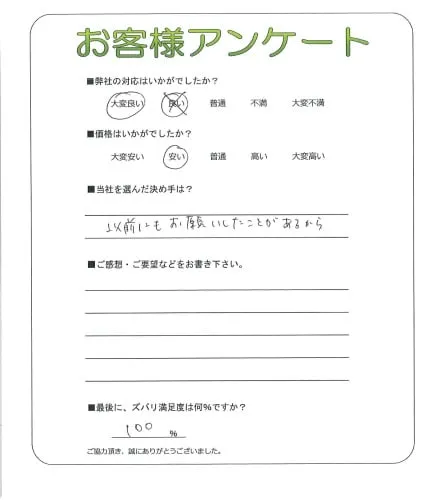 お客様アンケート
■弊社の対応はいかがでしたか？
大変良い 良い 普通 不満 大変不満
■価格はいかがでしたか？
大変安い 安い 普通 高い 大変高い
■当社を選んだ決め手は？
以前にもお願いしたことがあるから
■ご感想・ご要望などをお書き下さい。
■最後に、ズバリ満足度は何％ですか？
100 ％
ご協力頂き、誠にありがとうございました。